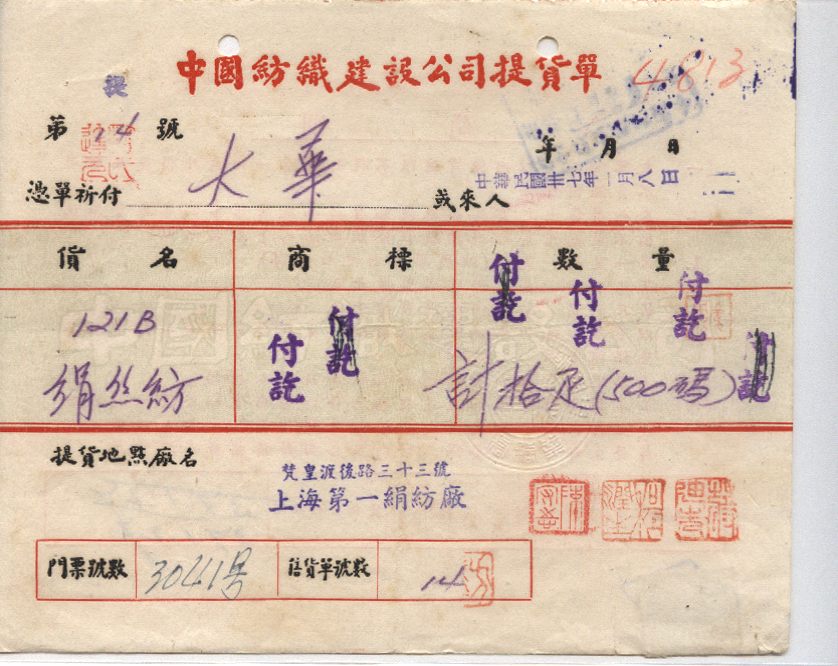 中國紡織建設公司提貨單
提
4813
第 14 號
年 月 日
憑單祈付 大華 或來人
中華民國卅七年一月八日
貨名 商標 數量
付訖 付訖 付訖
121B 付訖 付訖
絹丝紡 計拾疋(500碼) 付訖
提貨地點廠名
梵皇渡後路三十三號
上海第一絹紡廠
門票號數 3041号 售貨單號數 14